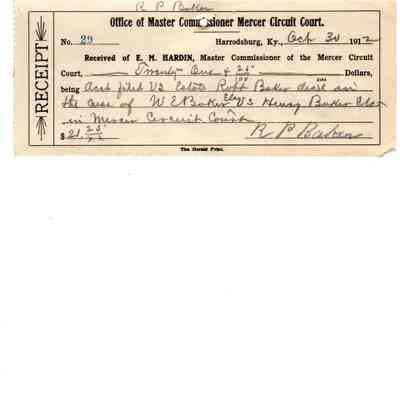 R P Baker
Office of Master Commissioner Mercer Circuit Court.
No. 29 Harrodsburg, Ky., Oct 30 1912
Received of E. M. HARDIN, Master Commissioner of the Mercer Circuit
Court, Twenty One & 25/100 Dollars,
being Acct filed VS Estate Robt Baker decd in
the case of W E Baker &c VS Henry Baker &c
in Mercer Circuit Court
$21.25 R P Baker
The Herald Print.
RECEIPT